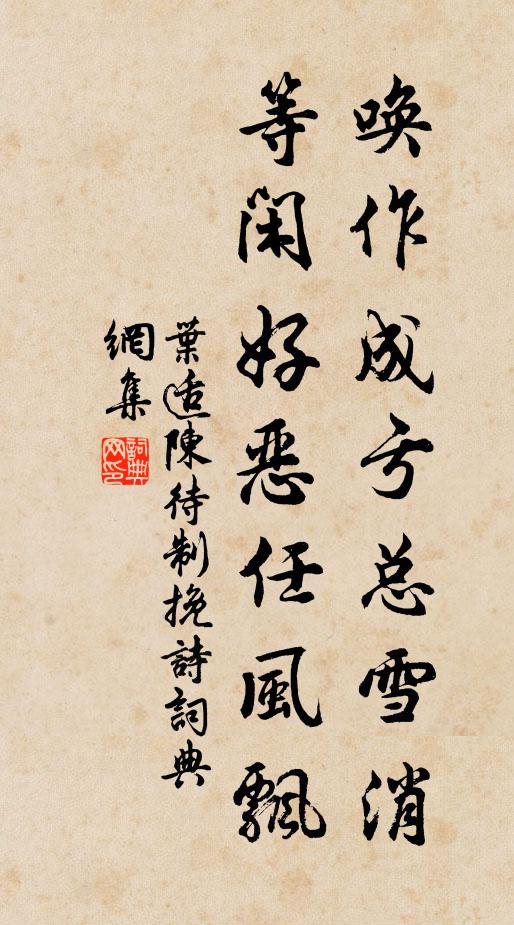 唤作成亏总雪消
等闲好恶任風飘
葉适陳待制挽詩詞典
網集
詞典
网印